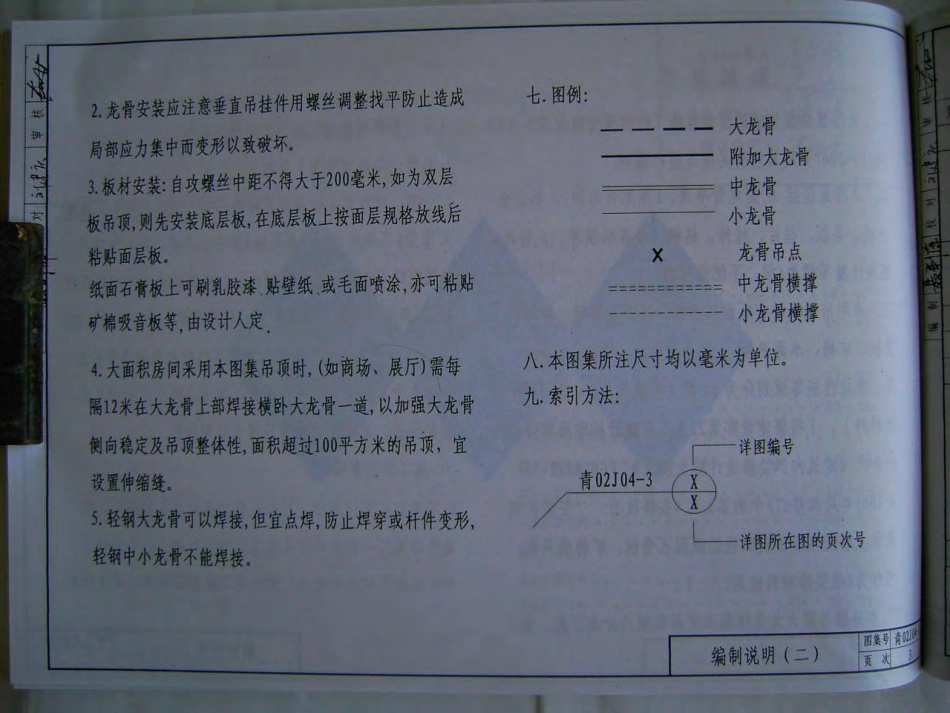 2.龙骨安装应注意垂直吊挂件用螺丝调整找平防止造成
局部应力集中而变形以致破坏。
3.板材安装:自攻螺丝中距不得大于200毫米,如为双层
板吊顶,则先安装底层板,在底层板上按面层规格放线后
粘贴面层板。
纸面石膏板上可刷乳胶漆、贴壁纸、或毛面喷涂,亦可粘贴
矿棉吸音板等,由设计人定.
4.大面积房间采用本图集吊顶时,(如商场、展厅)需每
隔12米在大龙骨上部焊接横卧大龙骨一道,以加强大龙骨
侧向稳定及吊顶整体性,面积超过100平方米的吊顶,宜
设置伸缩缝。
5.轻钢大龙骨可以焊接,但宜点焊,防止焊穿或杆件变形,
轻钢中小龙骨不能焊接。
七.图例:
大龙骨
附加大龙骨
中龙骨
小龙骨
X 龙骨吊点
中龙骨横撑
小龙骨横撑
八.本图集所注尺寸均以毫米为单位。
九.索引方法:
详图编号
青02J04-3
X
X
详图所在图的页次号
编制说明(二)
图集号 青02J04
页次 3
审核
校对
校对
编制